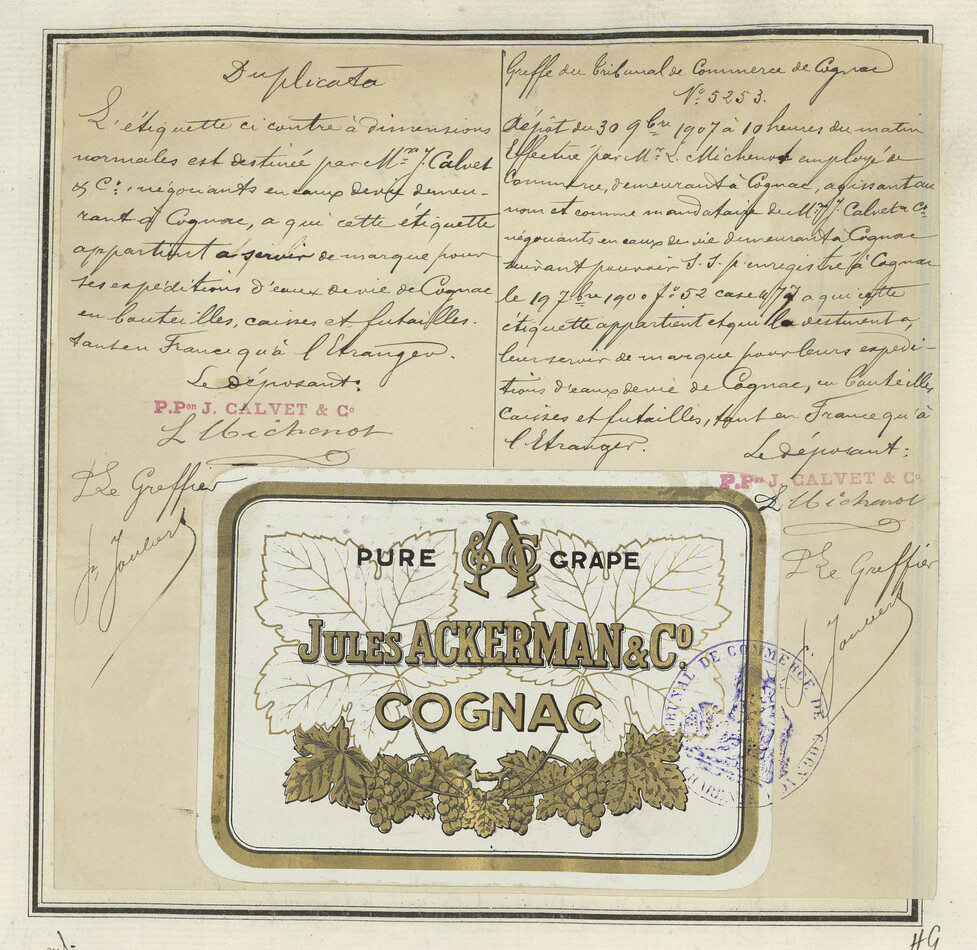 Duplicata
L'étiquette ci contre à dimensions
normales est destinée par Mrs J. Calvet
& Cie, négociants en eaux de vie demeu-
rant à Cognac, a qui cette étiquette
appartient a servir de marque pour
ses expéditions d'eaux de vie de Cognac
en bouteilles, caisses et futailles.
tant en France qu'à l'Etranger.
Le déposant:
P.Pon J. CALVET & Co
L Michenot
Le Greffier
Joubert
Greffe du Tribunal de Commerce de Cognac
No 5253.
Dépôt du 30 9bre 1907 à 10 heures du matin
Effectué par Mr. L. Michenot employé de
Commerce, demeurant à Cognac, agissant au
nom et comme mandataire de Mrs J. Calvet & Co
négociants en eaux de vie demeurant à Cognac
suivant pouvoir S.S.p. enregistré à Cognac
le 19 7bre 1900 fo 52 case 477 a qui cette
étiquette appartient et qui la destinent a,
leur servir de marque pour leurs expédi-
tions d'eaux de vie de Cognac, en bouteilles
caisses et futailles, tant en France qu'à
l'Etranger.
Le déposant:
P.Pon J. CALVET & Co
L Michenot
Le Greffier
Joubert
PURE A&Co GRAPE
JULES ACKERMAN & Co.
COGNAC
TRIBUNAL DE COMMERCE DE COGNAC
HG